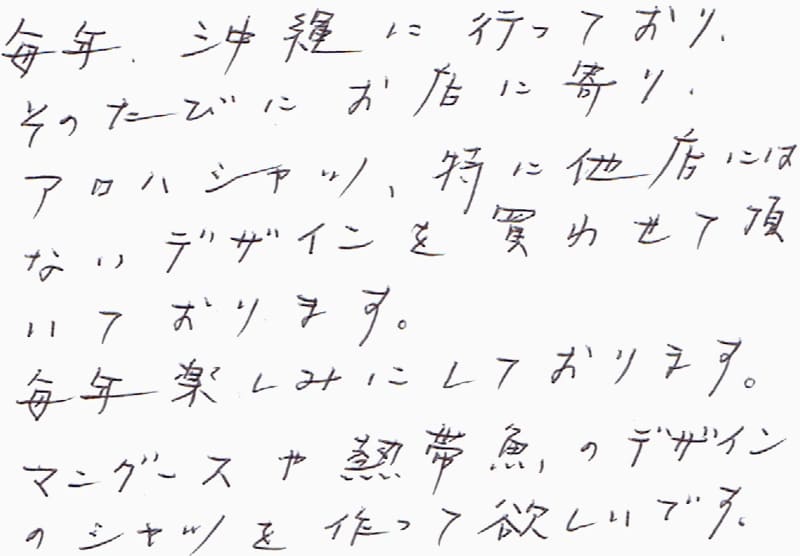 毎年、沖縄に行っており、
そのたびにお店に寄り、
アロハシャツ、特に他店には
ないデザインを買わせて頂
いております。
毎年楽しみにしております。
マングースや熱帯魚、のデザイン
のシャツを作って欲しいです。